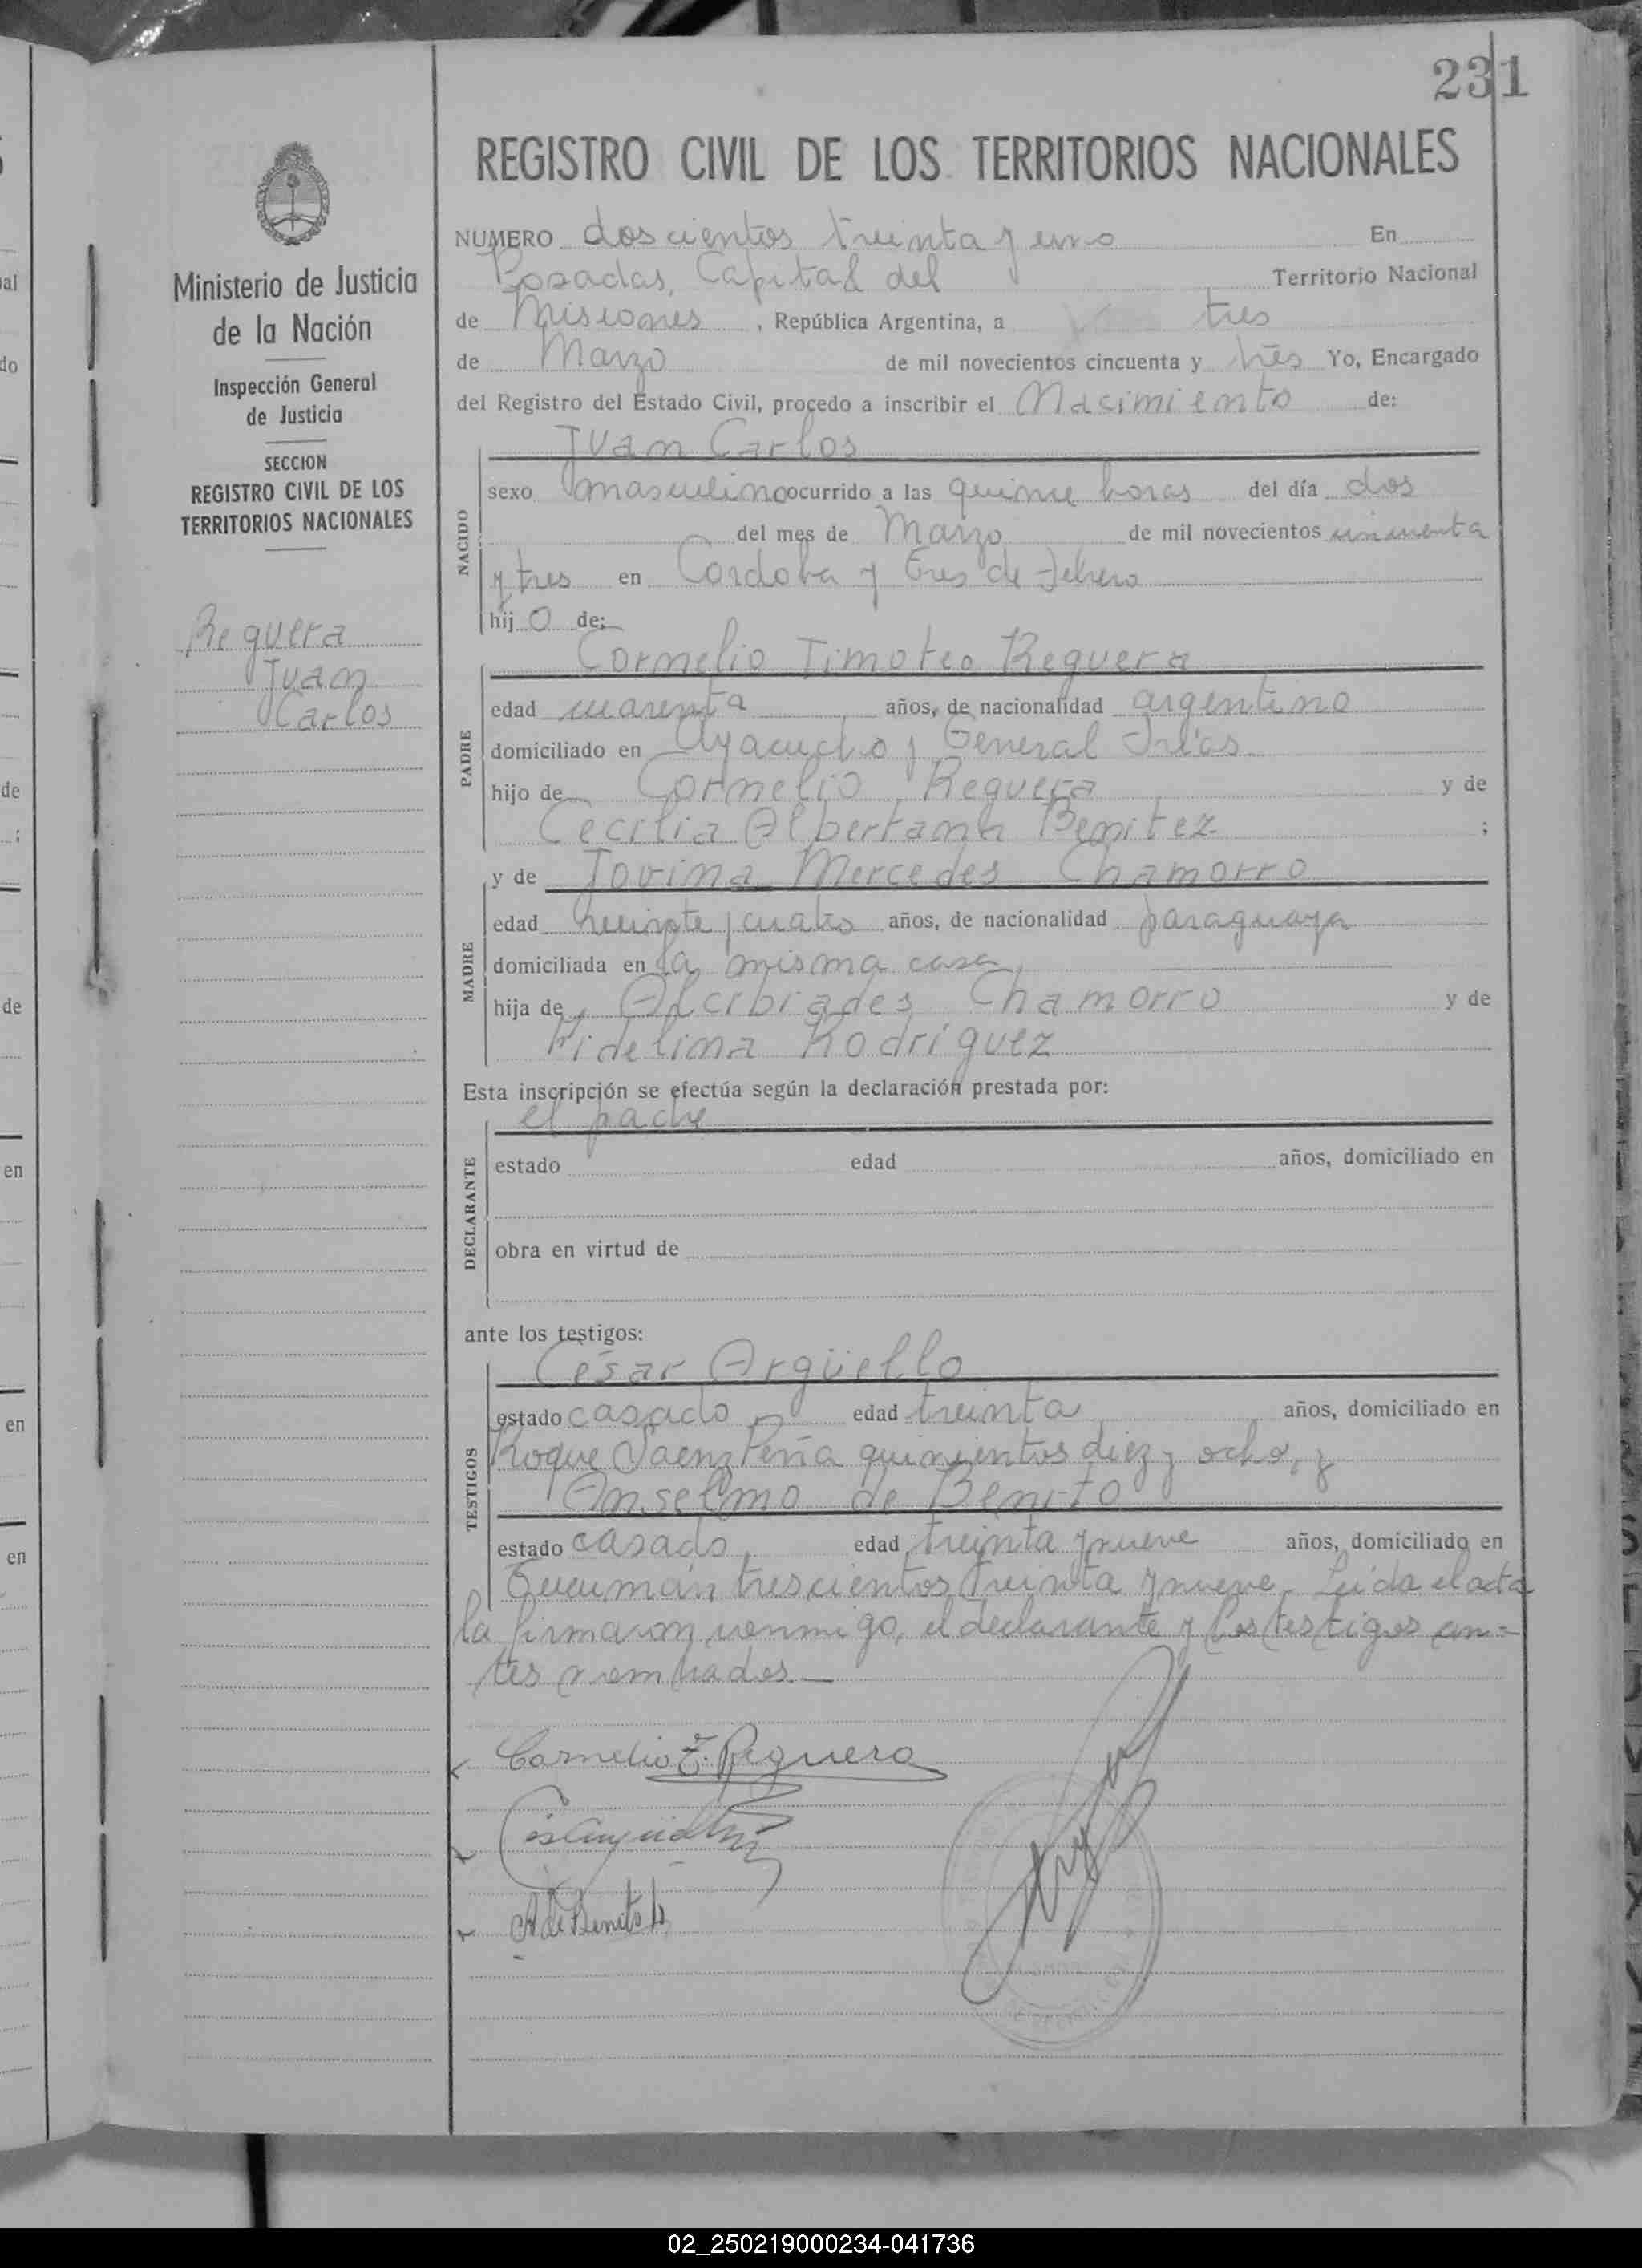 231
REGISTRO CIVIL DE LOS TERRITORIOS NACIONALES
Ministerio de Justicia
de la Nación
Inspección General
de Justicia
SECCION
REGISTRO CIVIL DE LOS
TERRITORIOS NACIONALES
Reguera
Juan
Carlos
NUMERO doscientos treinta y uno En
Posadas, Capital del Territorio Nacional
de Misiones, República Argentina, a tres
de Marzo de mil novecientos cincuenta y tres Yo, Encargado
del Registro del Estado Civil, procedo a inscribir el Nacimiento de:
Juan Carlos
NACIDO
sexo masculino ocurrido a las quince horas del día dos
del mes de Marzo de mil novecientos cincuenta
y tres en Córdoba y Tres de Febrero
hijo de:
Cornelio Timoteo Reguera
PADRE
edad cuarenta años, de nacionalidad argentino
domiciliado en Ayacucho y General
hijo de Cornelio Reguera y de
Cecilia Albertana Benitez ;
y de Jovina Mercedes Chamorro
MADRE
edad veinte y cuatro años, de nacionalidad paraguaya
domiciliada en la misma casa
hija de Alcibiades Chamorro y de
Fidelina Rodríguez
Esta inscripción se efectúa según la declaración prestada por:
el padre
DECLARANTE
estado edad años, domiciliado en
obra en virtud de
ante los testigos:
César Argüello
TESTIGOS
estado casado edad treinta años, domiciliado en
Roque Saenz Peña quinientos diez y ocho, y
Anselmo de Benito
estado casado edad treinta y nueve años, domiciliado en
Tucumán trescientos treinta y nueve. Leída el acta
la firmaron conmigo, el declarante y los testigos an=
tes nombrados.—
Cornelio T. Reguera
A de Benito
02_250219000234-041736